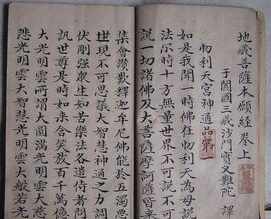 地藏菩薩本願經卷上
于闐國三藏沙門實叉難陀 譯
忉利天宮神通品第一
如是我聞一時佛在忉利天為母說
法爾時十方無量世界不可說不可
說一切諸佛及大菩薩摩訶薩皆來
集會讚歎釋迦牟尼佛能於五濁惡
世現不可思議大智慧神通之力調
伏剛強眾生知苦樂法各遣侍者問
訊世尊是時如來含笑放百千萬億
大光明雲所謂大圓滿光明雲大慈
悲光明雲大智慧光明雲大般若光